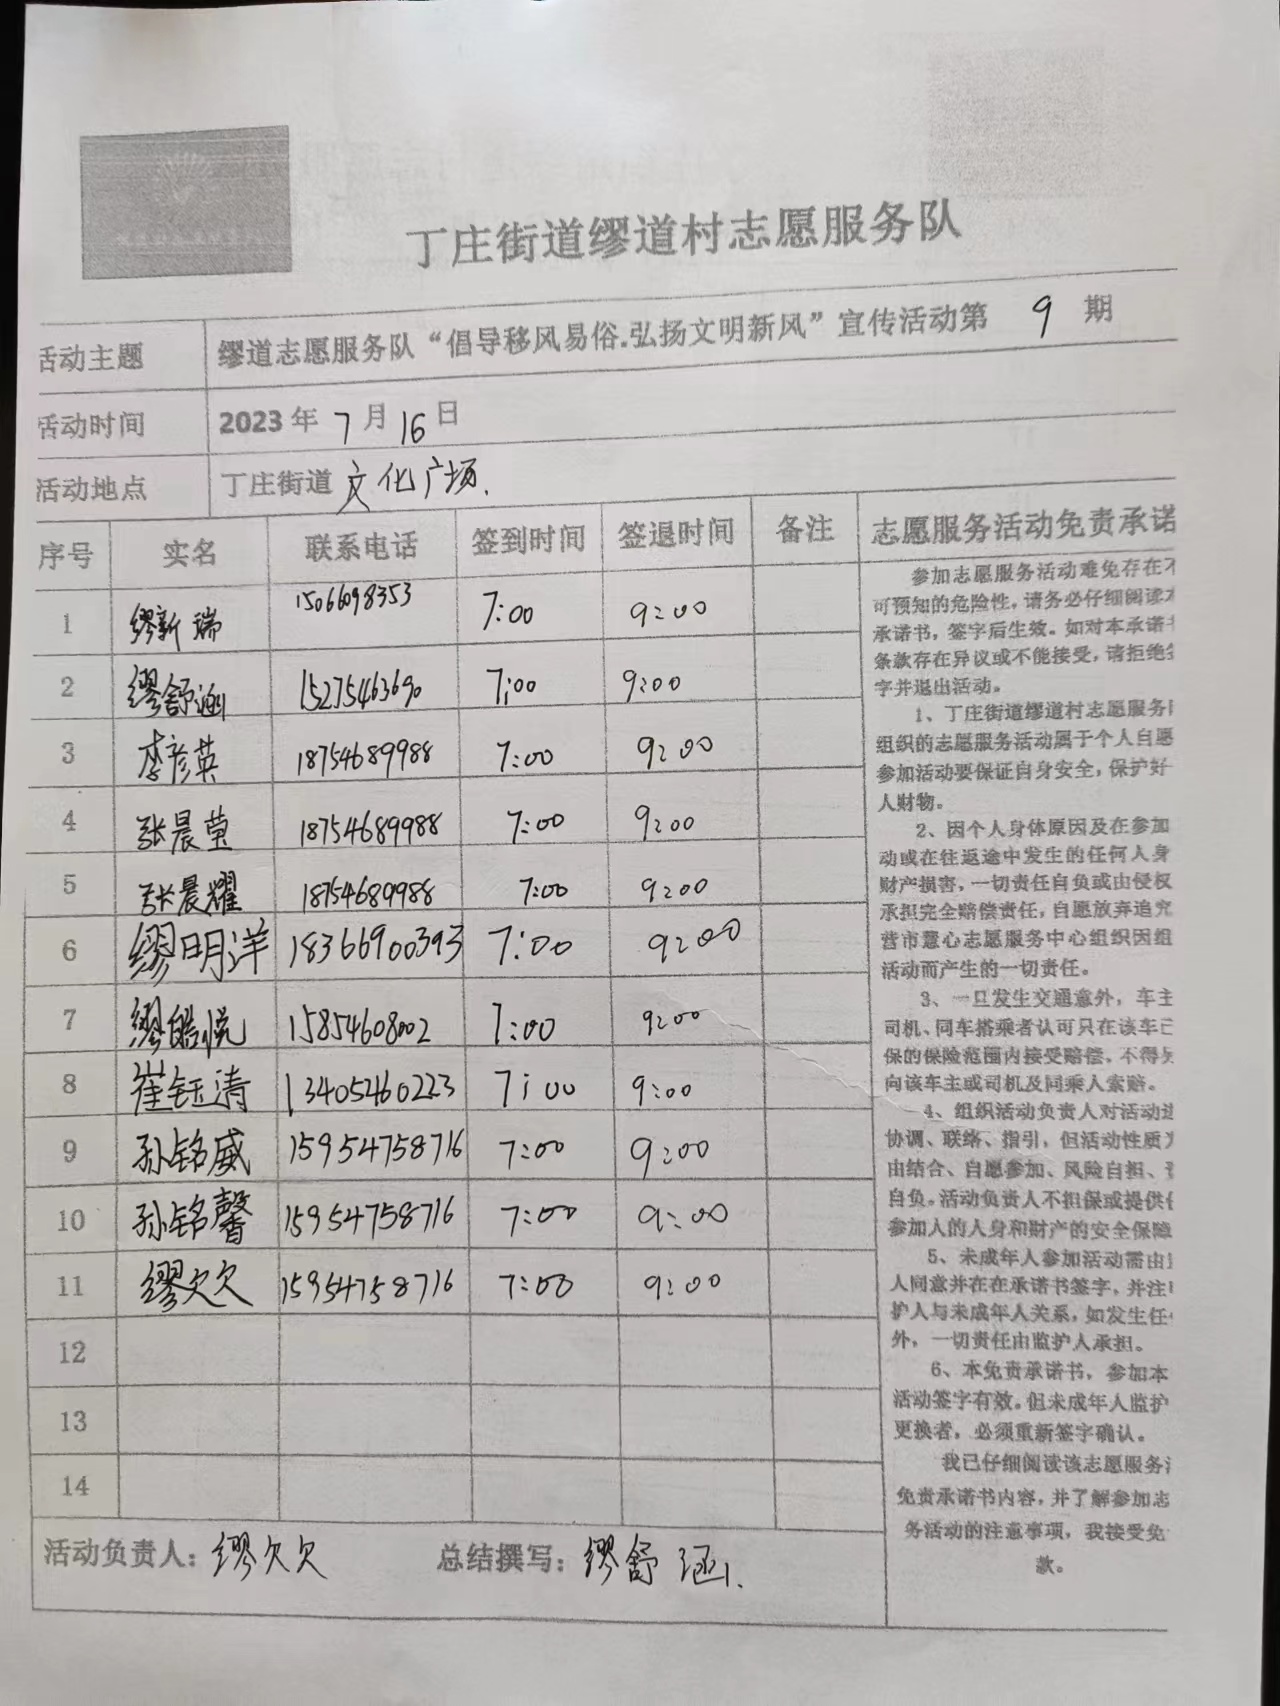 丁庄街道缪道村志愿服务队
活动主题 缪道志愿服务队“倡导移风易俗.弘扬文明新风”宣传活动第 9 期
活动时间 2023年 7月16日
活动地点 丁庄街道 文化广场.
序号 实名 联系电话 签到时间 签退时间 备注
1 缪新瑞 15066098353 7:00 9:00
2 缪舒涵 15275463690 7:00 9:00
3 李彦英 18754689988 7:00 9:00
4 张晨莹 18754689988 7:00 9:00
5 张晨耀 18754689988 7:00 9:00
6 缪明洋 18366900393 7:00 9:00
7 缪皓悦 15854608002 7:00 9:00
8 崔钰清 13405460223 7:00 9:00
9 孙铭威 15954758716 7:00 9:00
10 孙铭馨 15954758716 7:00 9:00
11 缪欠欠 15954758716 7:00 9:00
12
13
14
活动负责人：缪欠欠 总结撰写：缪舒涵.
志愿服务活动免责承诺
参加志愿服务活动难免存在不
可预知的危险性，请务必仔细阅读本
承诺书，签字后生效。如对本承诺书
条款存在异议或不能接受，请拒绝签
字并退出活动。
1、丁庄街道缪道村志愿服务队
组织的志愿服务活动属于个人自愿
参加活动要保证自身安全，保护好
人财物。
2、因个人身体原因及在参加
动或在往返途中发生的任何人身
财产损害，一切责任自负或由侵权
承担完全赔偿责任，自愿放弃追究
营市慧心志愿服务中心组织因组
活动而产生的一切责任。
3、一旦发生交通意外，车主
司机、同车搭乘者认可只在该车已
保的保险范围内接受赔偿，不得另
向该车主或司机及同乘人索赔。
4、组织活动负责人对活动进
协调、联络、指引，但活动性质为
由结合、自愿参加、风险自担、责
自负。活动负责人不担保或提供任
参加人的人身和财产的安全保障
5、未成年人参加活动需由监
人同意并在在承诺书签字，并注明
护人与未成年人关系，如发生任何
外，一切责任由监护人承担。
6、本免责承诺书，参加本
活动签字有效。但未成年人监护
更换者，必须重新签字确认。
我已仔细阅读该志愿服务活
免责承诺书内容，并了解参加志
务活动的注意事项，我接受免
款。